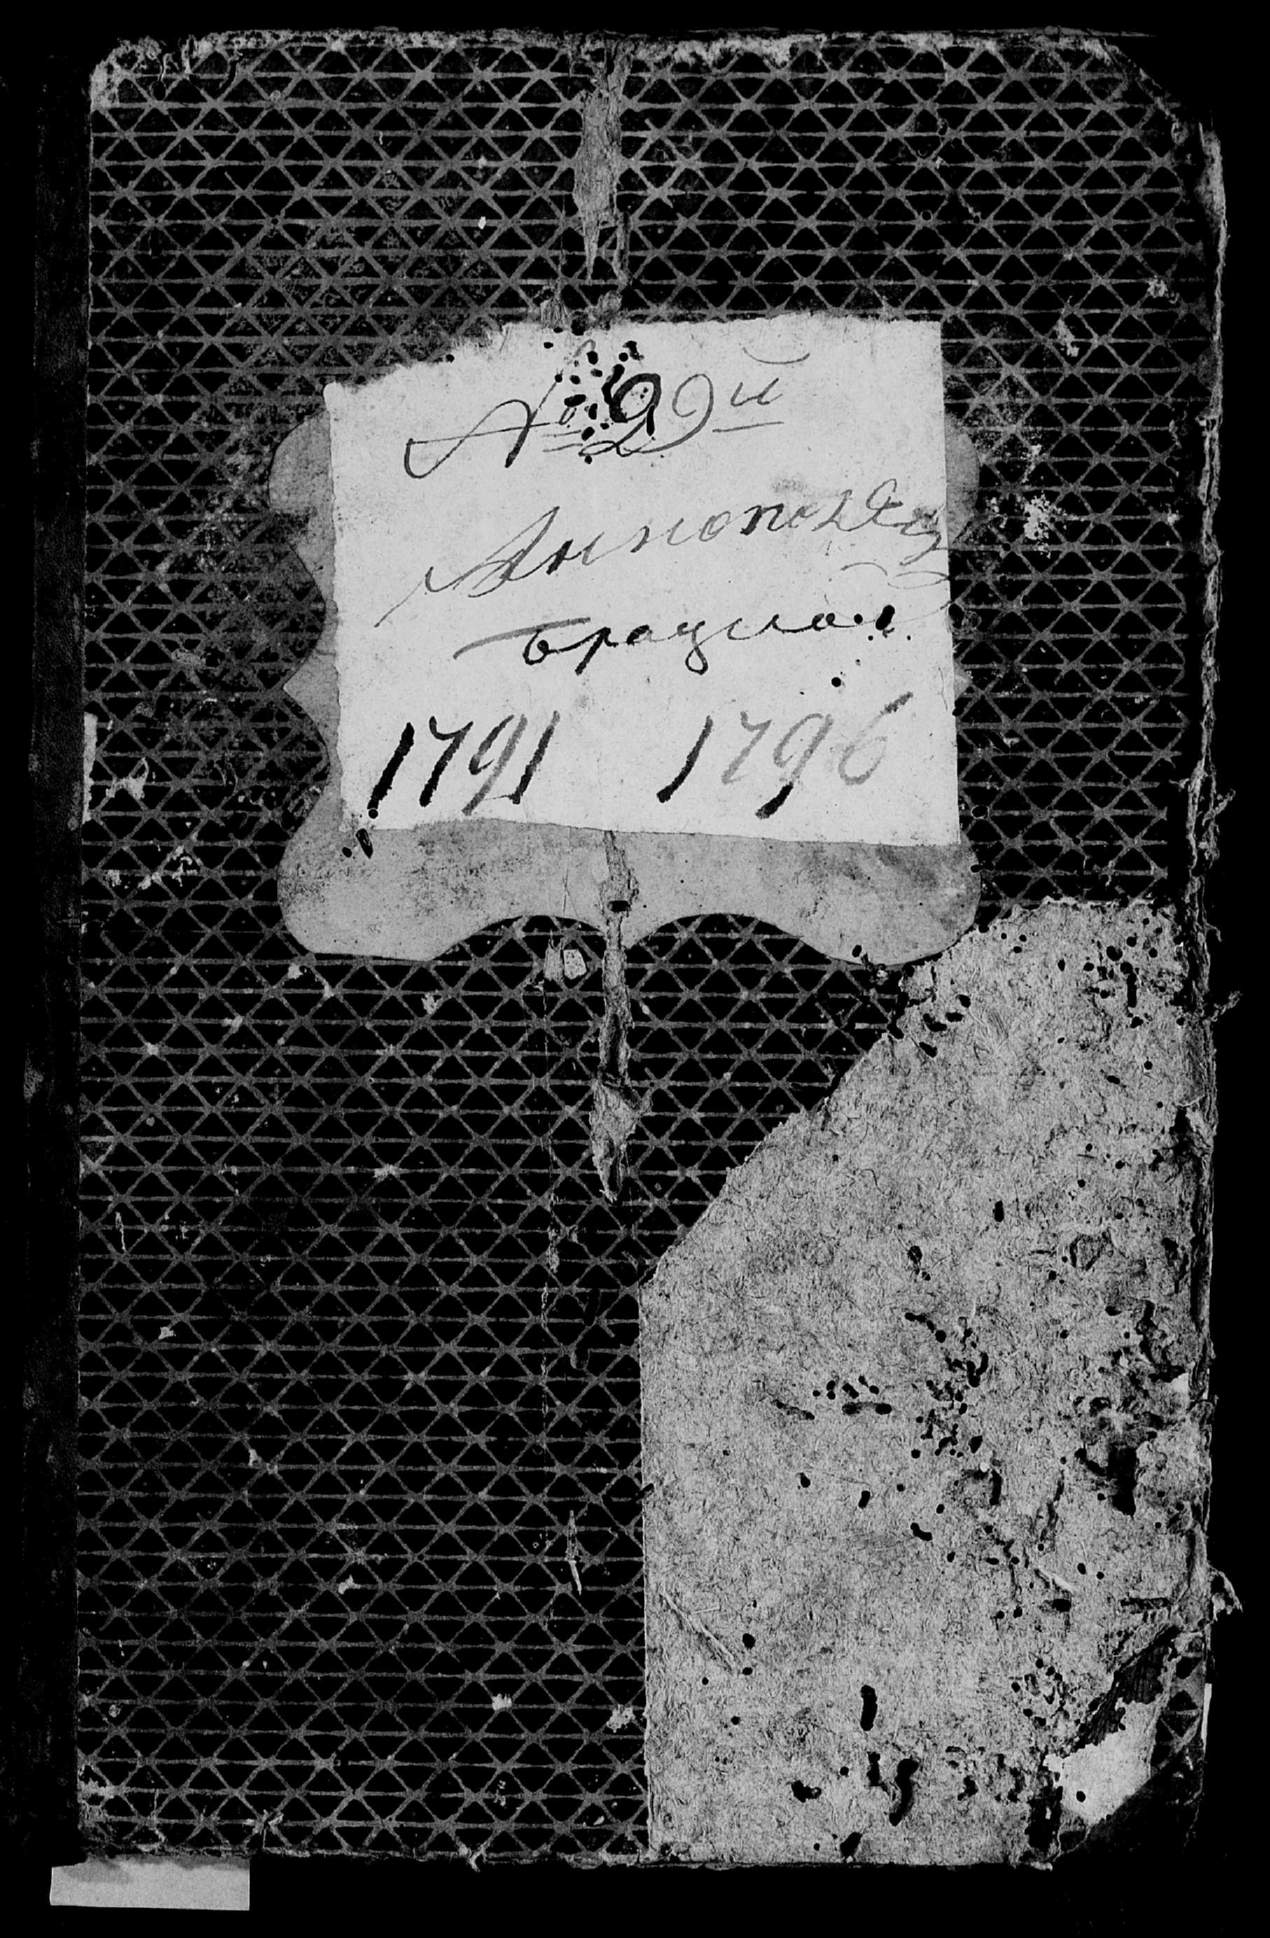 № 29й
Аннополь
Брачная
1791 1796